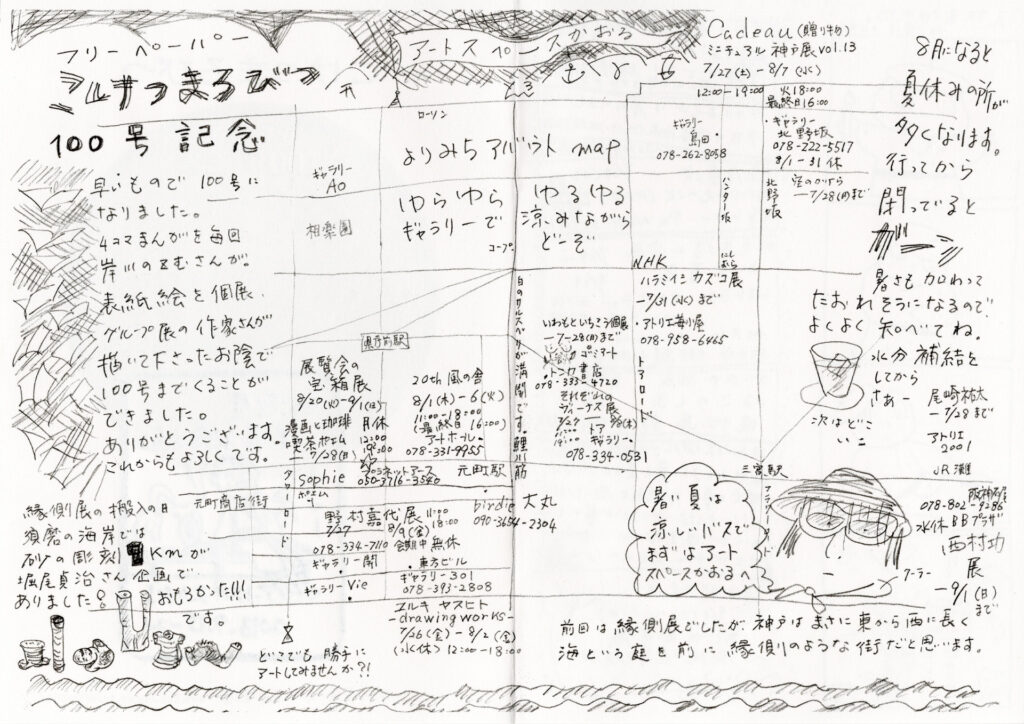 フリーペーパー
100号記念
早いもので100号に
なりました。
4コマまんがを毎回
表紙絵を個展、
グループ展の作家さんが
描いて下さったお陰で
100号までくることが
できました。
ありがとうございます。
これからもよろしくです。
縁側展の搬入の日
須磨の海岸では
砂の彫刻 1Kmが
堀尾貞治さん企画で
ありました!
おもろかった!!!
です。
どこでも勝手に
アートしてみませんか?!
アートスペースかおる
Cadeau(贈り物)
ミニチュアル神戸展vol.13
7/27(土)-8/7(水)
12:00-19:00 火18:00
最終日16:00
ローソン
よりみちアバウト map
ゆらゆら ゆるゆる
ギャラリーで 涼みながら
どーぞ
コープ
ギャラリー
AO
相楽園
ギャラリー
島田
078-262-8058
・ギャラリー
北野坂
078-222-5517
8/1-31休
ハンター坂
北野坂
-7/28(日)まで
NHK
ハラミイシカズコ展
-7/31(水)まで
・アトリエ苺小屋
078-958-6465
白のサルスベリが満開です。鯉川筋
いわもといちこう個展
-7-28(日)まで
・トンカ書店
078-333-4720
それぞれの
ヴィーナス展
トア
ギャラリー・
078-334-0531
トアロード
県庁前駅
展覧会の
宝箱展
8/20(火)-9/1(日)
漫画と珈琲 月休
喫茶ポエム 12:00
-7/28(日) 19:00
20th 風の舎
8/1(木)-6(火)
11:00-18:00
(最終日16:00)
アートホール・
078-331-9955
sophie プラネットアース
050-3716-3540
元町駅
元町商店街
タワーロード
野村嘉代展 11:00
18:00
7/27 - 8/9(金)
078-334-7110 会期中無休
ギャラリー開
・東方ビル
・birdie 大丸
090-3654-2304
ギャラリーVie
ギャラリー301
078-393-2808
ユルキ ヤスヒト
-drawingworks-
7/26(金)-8/2(金)
(水休) 12:00-18:00
三宮駅
フラワーロード
8月になると
夏休みの所が
多くなります。
行ってから
閉ってでると
ガーーン
暑さも加わって
たおれそうになるので、
よくよく知べてね。
水分補給を
してから
さあー
次はどこ
いこ
尾崎祐太
-7/28まで
アトリエ
2001
JR灘
078-802-9286
水休 BBプラザ
西村功
展
-9/1(日)
まで
クーラー
暑い夏は
涼しいバスで
まずはアート
スペースかおるへ
前回は縁側展でしたが、神戸はまさに東から西に長く
海という庭を前に縁側のような街だと思います。